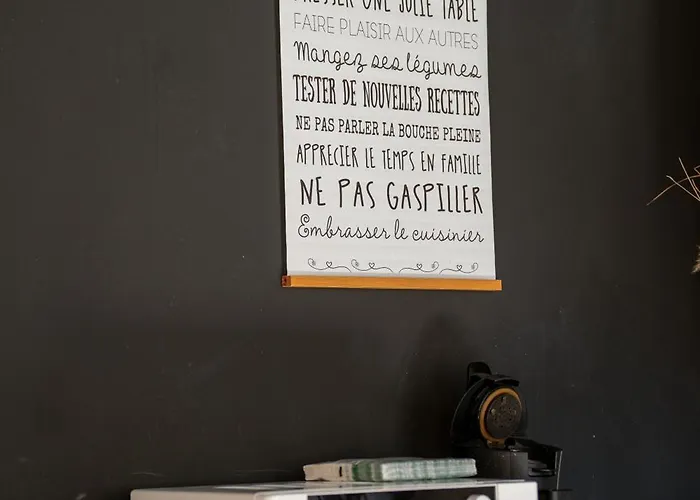 DRESSER UNE JOLIE TABLE
FAIRE PLAISIR AUX AUTRES
Mangez ses légumes
TESTER DE NOUVELLES RECETTES
NE PAS PARLER LA BOUCHE PLEINE
APPRECIER LE TEMPS EN FAMILLE
NE PAS GASPILLER
Embrasser le cuisinier